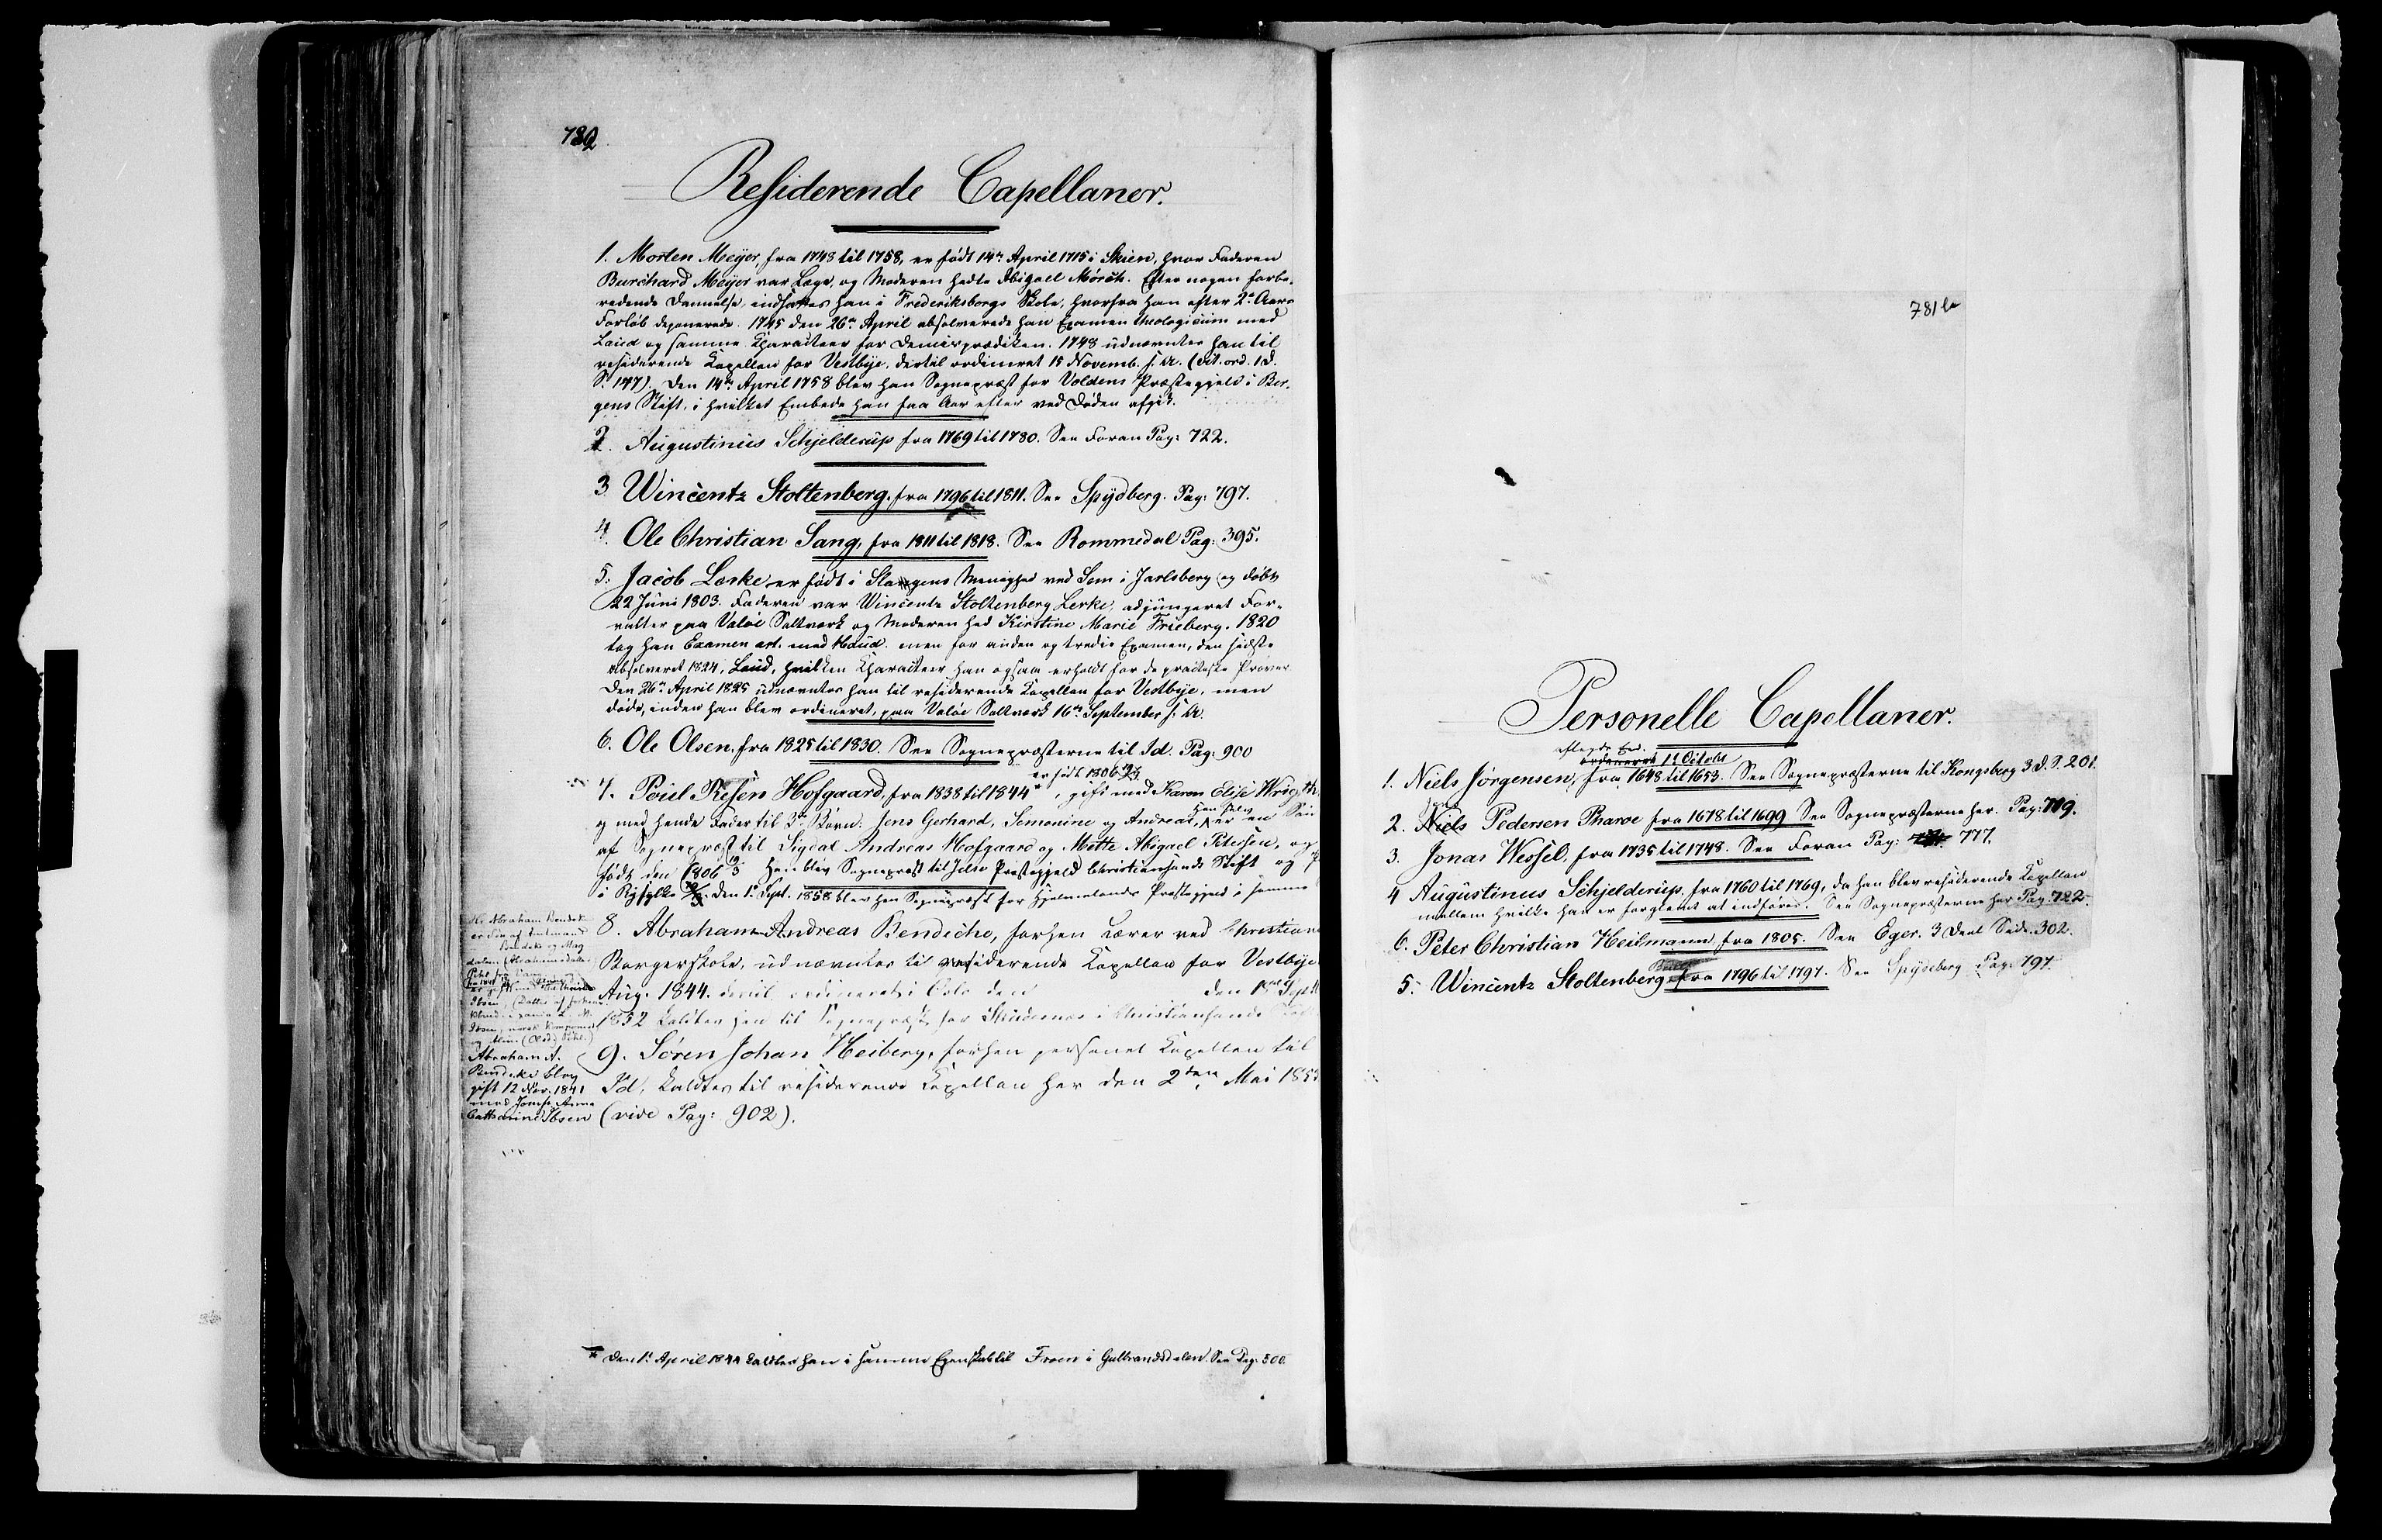 782
Residerende Capellaner.
1. Morten Meyer, fra 1748 til 1758, er født 14de April 1715 i Skien, hvor Faderen
Burchard Meyer var Læge, og Moderen hedte Abigaell Mørch. Efter nogen forbe-
redende Dannelse indsattes han i Frederiksborgs Skole, hvorfra han efter 2de Aars
Forløb deponerede. 1745 den 26de April absolverede han Examen theologicum med
Laud og samme Charakteer for Demisprædiken. 1748 udnævntes han til
residerende Capellan for Vestbye, dertil ordineret 15 Novemb. s. A. (Act. ord. 1 D.
S. 147). Den 14de April 1758 blev han Sognepræst for Voldens Præstegjeld i Ber-
gens Stift, i hvilket Embede han faa Aar efter ved Døden afgik.
2. Augustinus Schjelderup fra 1769 til 1780. See Foran Pag: 722.
3 Wincentz Stoltenberg, fra 1796 til 1811. See Spydberg. Pag: 797.
4. Ole Christian Sang, fra 1811 til 1818. See Rommedal Pag: 395.
5. Jacob Lerke er født i Slagens Menighed ved Sem i Jarlsberg og døbt
22 Juni 1803. Faderen var Wincentz Stoltenberg Lerke, adjungeret For-
valter paa Valøe Saltværk og Moderen hed Kirstine Marie Frieberg. 1820
tog han Examen art. med Haud. men for anden og tredie Examen, den sidste
absolveret 1824, Laud, hvilken Charakteer han ogsaa erholdt for de practiske Prøver.
Den 26de April 1825 udnævntes han til residerende Capellan for Vestbye, men
døde, inden han blev ordineret, paa Valøe Saltværk 16de September s. A.
6. Ole Olsen, fra 1825 til 1830. See Sognepræsterne til Id. Pag: 900
er født 1806
7. Poul Resen Hofgaard, fra 1838 til 1844 *, gift med Karen Elise
og med hende Fader til 3de Børn: Jens Gerhard, Semonine og Andreas, Han selv er en Søn
af Sognepræst til Sigdal Andreas Hofgaard og Mette Abigael Petersen, og
født den 1806 Han blev Sognepræst til Jelse Præstegjeld Christiansands Stift og
i Ryfylke den 1ste Sept. 1858 blev han Sognepræst for Hjelmelands Præstegjeld i samme
8. Abraham Andreas Bendeche, forhen Lærer ved Christian
Borgerskole, udnævntes til residerende Capellan for Vestbye
Aug. 1844. ordineret i Oslo den den 1ste Sept
1852 kaldtes han til Sognepræst for Skudenes i Christiansands
Abraham A.
Bendeke blev
gift 12 Nov. 1841
med Jomfr. Anna
Catharine Ibsen
9. Søren Johan Heiberg, forhen personel Capellan til
Id, kaldtes til residerende Capellan her den 2den Mai 1853
(vide Pag: 902).
* Den 1ste April 1844 kaldtes han i samme Egenskab til Froen i Gulbrandsdalen. See Pag: 500.
781b
Personelle Capellaner.
ordineret 19 Octobr
1. Niels Jørgensen, fra 1648 til 1653. See Sognepræsterne til Kongsberg 3 D. S. 201.
2. Niels Pedersen Pharoe fra 1678 til 1699 See Sognepræsterne her. Pag: 719.
3. Jonas Wessel, fra 1735 til 1748. See Foran Pag: 777.
4 Augustinus Schjelderup, fra 1760 til 1769, da han blev residerende Capellan
mellem hvilke han er forglemt at indføres. See Sognepræsterne her Pag. 722.
6. Peter Christian Heilmann, fra 1805. See Eger. 3 Deel Side. 302.
5. Wincentz Stoltenberg fra 1796 til 1797. See Spydeberg Pag. 797.